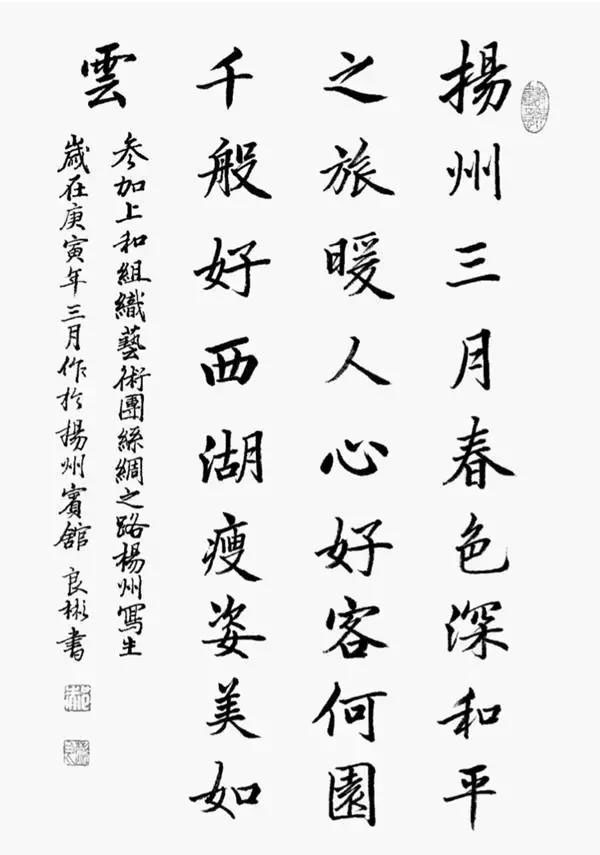 揚州三月春色深和平
之旅暖人心好客何園
千般好西湖瘦姿美如
雲
參加上和組織藝術團絲綢之路楊州寫生
嵗在庚寅年三月作於揚州賓舘 良彬書